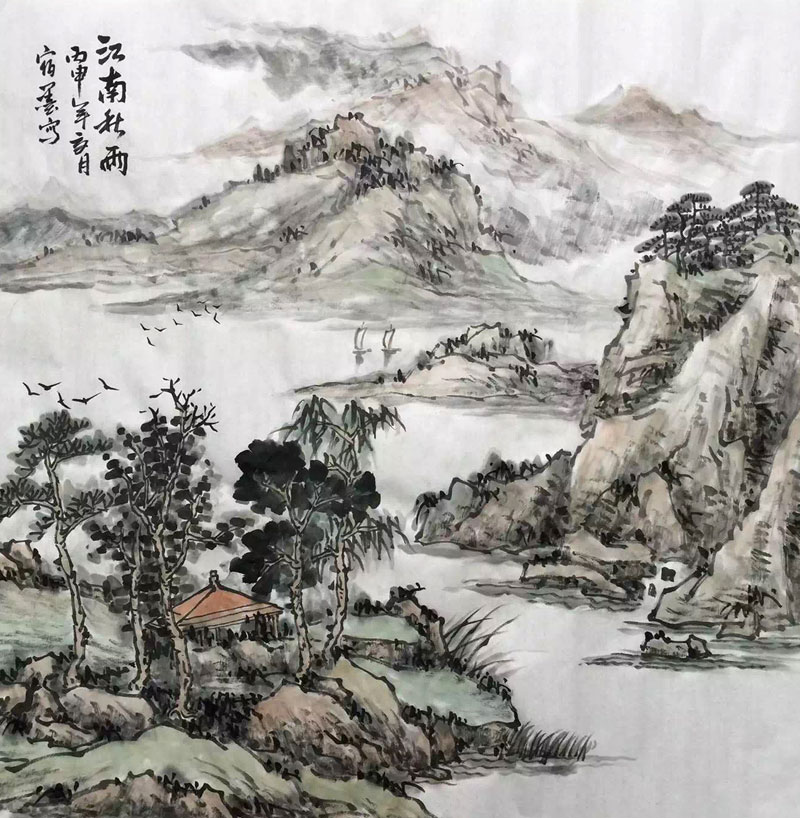 江南秋雨
丙申年亥月
宿墨写